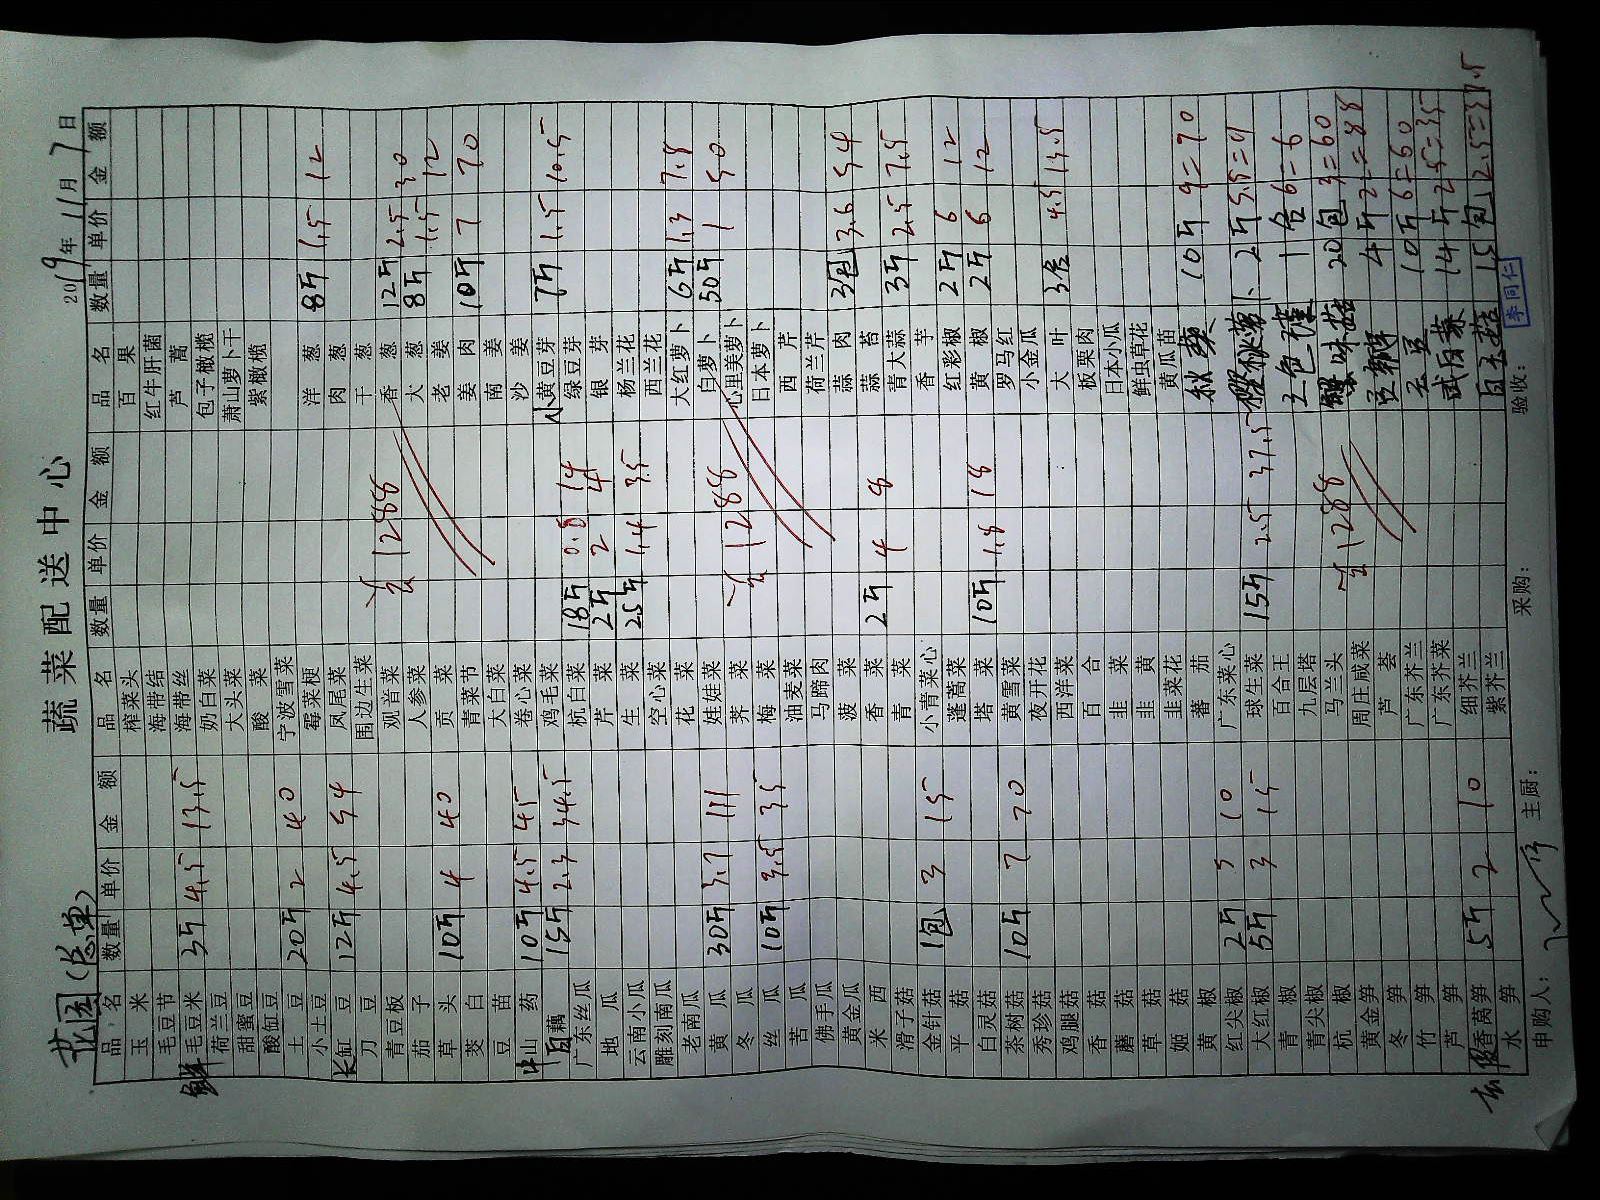 蔬菜配送中心
花园(总单)
2019年11月7日
品名 数量 单价 金额 品名 数量 单价 金额 品名 数量 单价 金额
玉米 榨菜头 百果
毛豆节 海带结 红牛肝菌
鲜毛豆米 3斤 4.5 13.5 海带丝 芦蒿
荷兰豆 奶白菜 包子橄榄
甜蜜豆 大头菜 萧山萝卜干
酸缸豆 酸菜 紫橄榄
土豆 20斤 2 40 宁波雪菜
小土豆 霉菜梗 洋葱 8斤 1.5 12
长缸豆 12斤 4.5 54 凤尾菜 肉葱
刀豆 围边生菜 干葱
青豆板 观音菜 1288 香葱 12斤 2.5 30
茄子 人参菜 大葱 8斤 1.5 12
草头 10斤 4 40 贡菜 老姜
茭白 青菜节 姜肉 10斤 7 70
豆苗 大白菜 南姜
山药 10斤 4.5 45 卷心菜 沙姜
白藕 15斤 2.3 34.5 鸡毛菜 小黄豆芽 7斤 1.5 10.5
广东丝瓜 杭白菜 18斤 0.8 14 绿豆芽
地瓜 芹菜 2斤 2 4 银芽
云南小瓜 生菜 25斤 1.4 35 杨兰花
雕刻南瓜 空心菜 西兰花
老南瓜 花菜 大红萝卜 6斤 1.3 7.8
黄瓜 30斤 3.7 111 娃娃菜 白萝卜 50斤 1 50
冬瓜 荠菜 1288 心里美萝卜
丝瓜 10斤 3.5 35 梅菜 日本萝卜
苦瓜 油麦菜 西芹
佛手瓜 马蹄肉 荷兰芹
黄金瓜 菠菜 蒜肉 3包 3.6 54
米西 香菜 2斤 4 8 蒜苔
滑子菇 青菜 青大蒜 3斤 2.5 7.5
金针菇 1包 3 15 小青菜心 香芋
平菇 蓬蒿菜 红彩椒 2斤 6 12
白灵菇 塔菜 10斤 1.8 18 黄椒 2斤 6 12
茶树菇 10斤 7 70 黄雪菜 罗马红
秀珍菇 夜开花 小金瓜
鸡腿菇 西洋菜 大叶 3 4.5 13.5
香菇 百合 板栗肉
蘑菇 韭菜 日本小瓜
草菇 韭黄 鲜虫草花
姬菇 韭菜花 黄瓜苗
黄椒 番茄 秋葵 10斤 7=70
红尖椒 2斤 5 10 广东菜心
大红椒 5斤 3 15 球生菜 15斤 2.5 37.5 萝卜 2斤
青椒 百合王 三色堇 1合 6=6
青尖椒 九层塔 味菇 20包 3=60
杭椒 马兰头 1288 豆瓣 4斤
黄金笋 周庄咸菜 10斤 6=60
冬笋 芦荟 14斤 2.5=35
竹笋 广东芥兰 白玉菇 15包 2.5=37.5
芦笋 广东芥菜
香莴笋 5斤 2 10 细芥兰
水笋 紫芥兰
申购人: 主厨: 采购: 验收: 李同仁